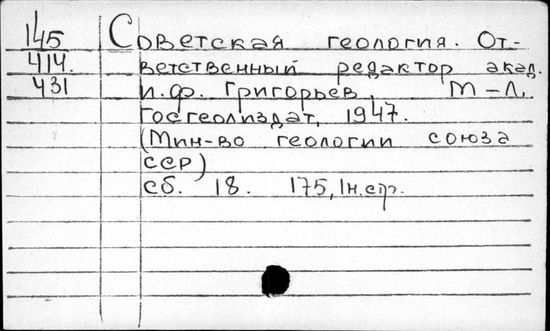 145
414.
431
Советская геология. От-
ветственный редактор акад.
И.Ф. Григорьев. М-Л.
Госгеолиздат, 1947.
(Мин-во геологии союза
ССР)
Сб. 18. 175, 1н.стр.